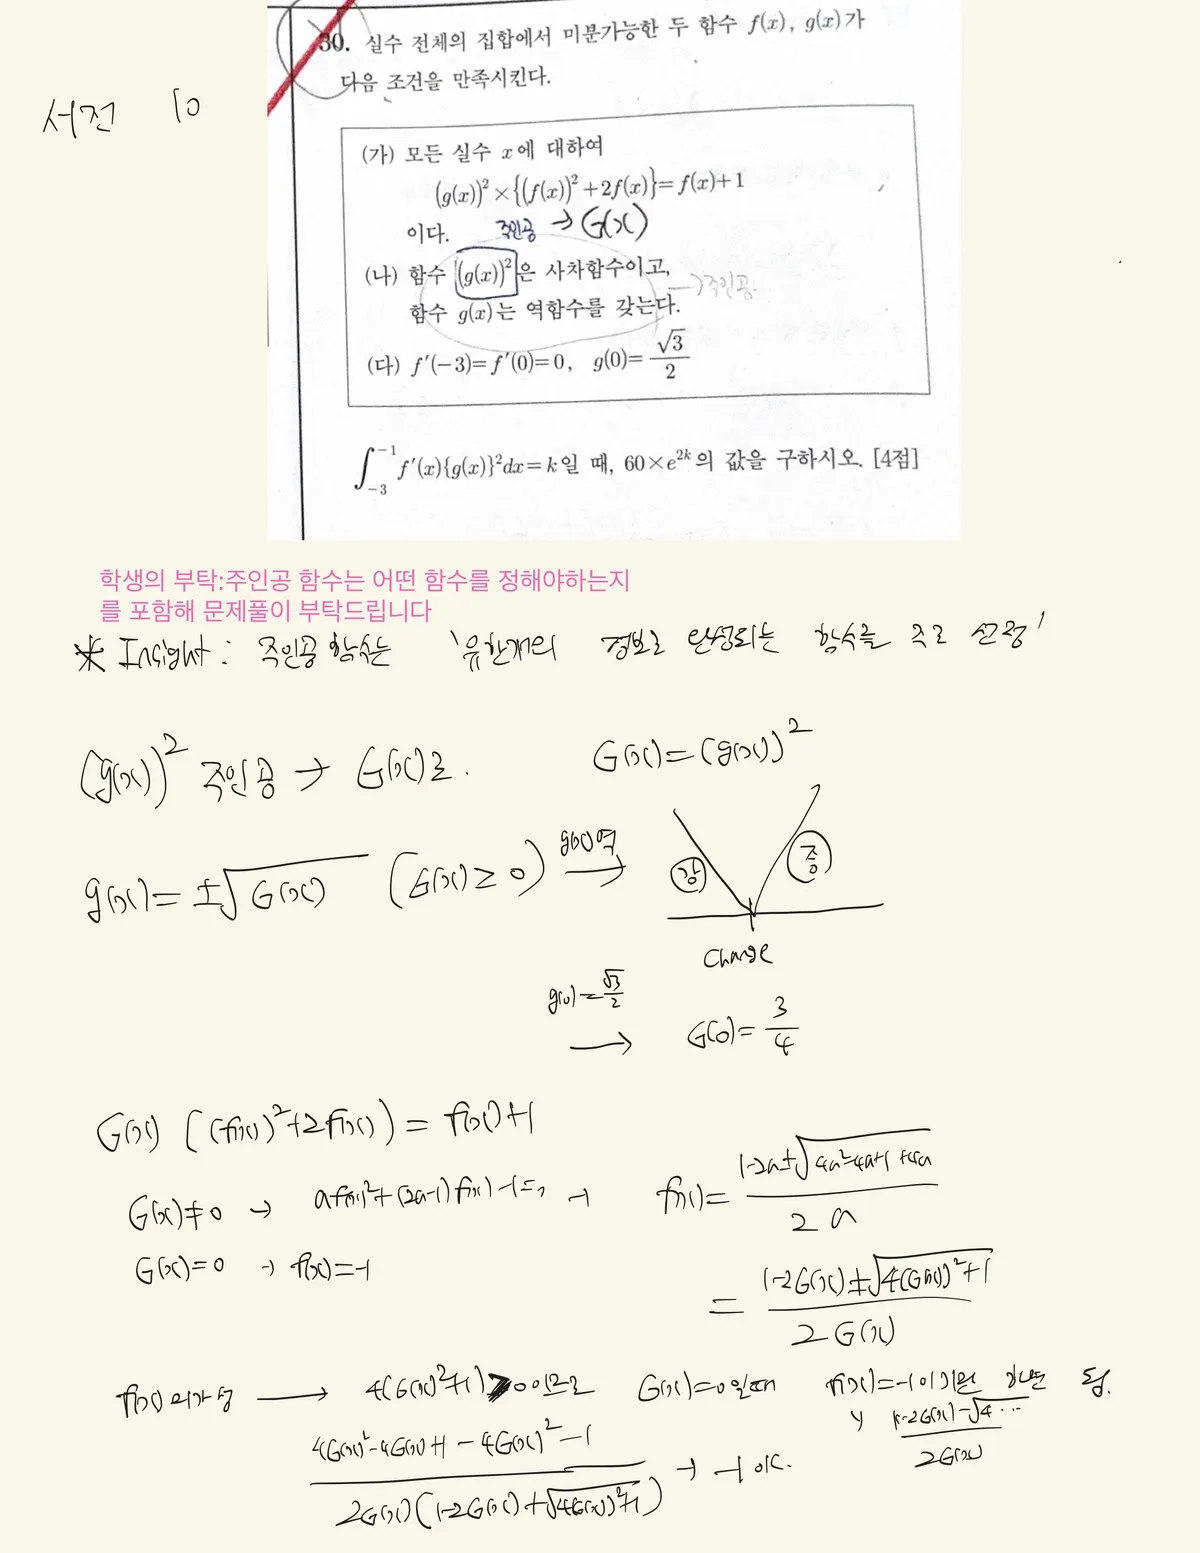 서전 10
30. 실수 전체의 집합에서 미분가능한 두 함수 f(x), g(x)가
다음 조건을 만족시킨다.
(가) 모든 실수 x에 대하여
(g(x))² × {(f(x))² + 2f(x)} = f(x)+1
이다. 주인공 → G(x)
(나) 함수 (g(x))²은 사차함수이고, → 주인공.
함수 g(x)는 역함수를 갖는다.
(다) f′(−3)=f′(0)=0, g(0)=√3/2
∫₋₃⁻¹ f′(x){g(x)}²dx=k일 때, 60×e²ᵏ의 값을 구하시오. [4점]
학생의 부탁:주인공 함수는 어떤 함수를 정해야하는지
를 포함해 문제풀이 부탁드립니다
* Insight : 주인공 함수는 '유한개의 정보로 완성되는 함수를 주로 선정'
(g(x))² 주인공 → G(x)로. G(x)=(g(x))²
g(x)=±√G(x) (G(x)≥0) g(x) 역 → 감 증
Change
g(0)=√3/2 → G(0)=3/4
G(x) ((f(x))²+2f(x)) = f(x)+1
G(x)≠0 → af(x)²+(2a-1)f(x)-1=0 → f(x)= (1-2a±√(4a²-4a+1+4a))/2a
G(x)=0 → f(x)=-1
= (1-2G(x)±√(4(G(x))²+1))/2G(x)
f(x) 미가능 → 4(G(x)²+1)>0이므로 G(x)=0일때 f(x)=-1이기만 하면 됨.
(4G(x)²-4G(x)+1-4G(x)²-1)/(2G(x)(1-2G(x)+√(4G(x)²+1))) → -1 ok.
(1-2G(x)-√4⋯)/2G(x)